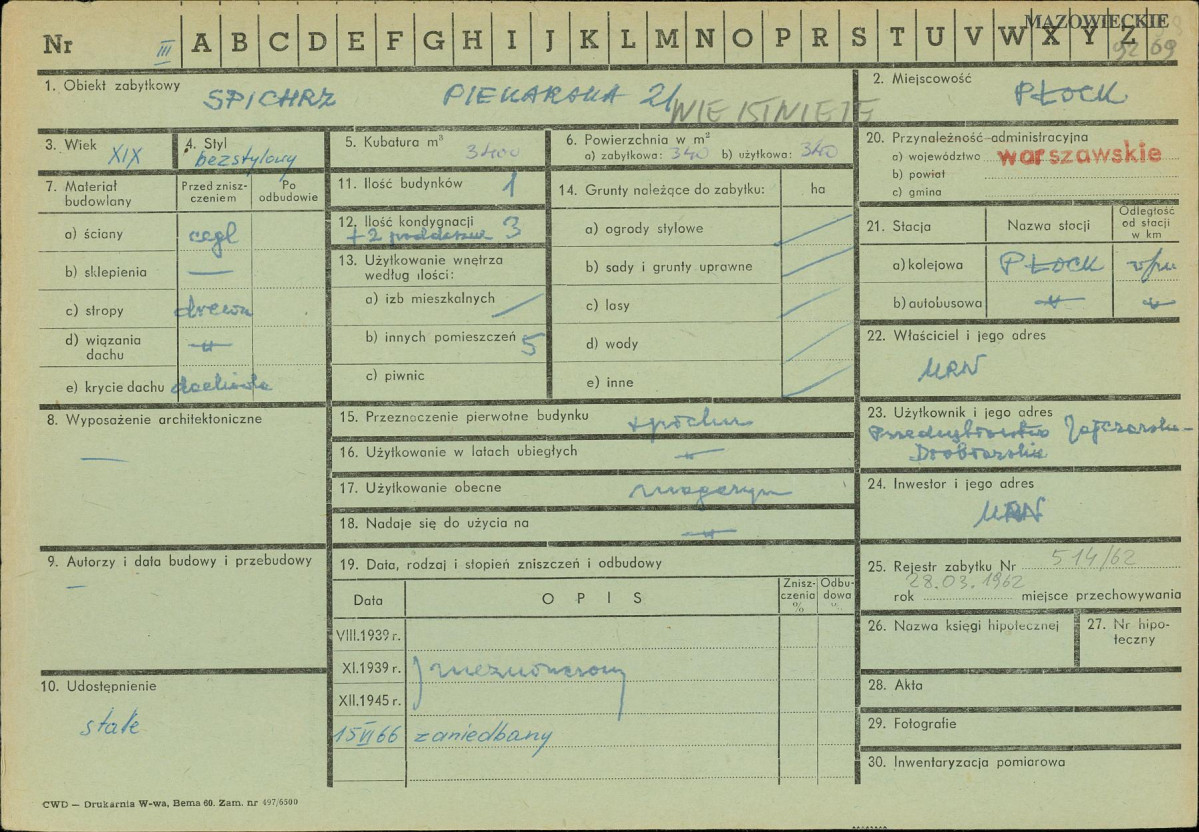 Nr III A B C D E F G H I J K L M N O P R S T U V W X Y Z
MAZOWIECKIE
1. Obiekt zabytkowy
SPICHRZ PIEKARSKA 21 NIE ISTNIEJE
2. Miejscowość
PŁOCK
3. Wiek XIX
4. Styl
bezstylowy
5. Kubatura m³ 3400
6. Powierzchnia w m²
a) zabytkowa: 340 b) użytkowa: 340
20. Przynależność administracyjna
a) województwo warszawskie
b) powiat
c) gmina
7. Materiał budowlany
Przed zniszczeniem
Po odbudowie
a) ściany cegł
b) sklepienia —
c) stropy drewn
d) wiązania dachu -"-
e) krycie dachu dachówka
11. Ilość budynków 1
12. Ilość kondygnacji 3
+ 2 poddasza
13. Użytkowanie wnętrza
według ilości:
a) izb mieszkalnych
b) innych pomieszczeń 5
c) piwnic
14. Grunty należące do zabytku: ha
a) ogrody stylowe
b) sady i grunty uprawne
c) lasy
d) wody
e) inne
21. Stacja
Nazwa stacji
Odległość od stacji w km
a) kolejowa PŁOCK
b) autobusowa -"- -"-
22. Właściciel i jego adres
MRN
8. Wyposażenie architektoniczne
—
15. Przeznaczenie pierwotne budynku
16. Użytkowanie w latach ubiegłych -"-
17. Użytkowanie obecne magazyn
18. Nadaje się do użycia na -"-
23. Użytkownik i jego adres
Przedsiębiorstwo Jajczarsko-
Drobiarskie
24. Inwestor i jego adres
MRN
9. Autorzy i data budowy i przebudowy
—
19. Data, rodzaj i stopień zniszczeń i odbudowy
Data
OPIS
Zniszczenia %
Odbudowa %
VIII.1939 r.
XI.1939 r. niezniszczony
XII.1945 r.
15 VI 66 zaniedbany
10. Udostępnienie
stałe
25. Rejestr zabytku Nr 514/62
28.03.1962
rok miejsce przechowywania
26. Nazwa księgi hipotecznej
27. Nr hipoteczny
28. Akta
29. Fotografie
30. Inwentaryzacja pomiarowa
CWD — Drukarnia W-wa, Bema 60. Zam. nr 497/6500